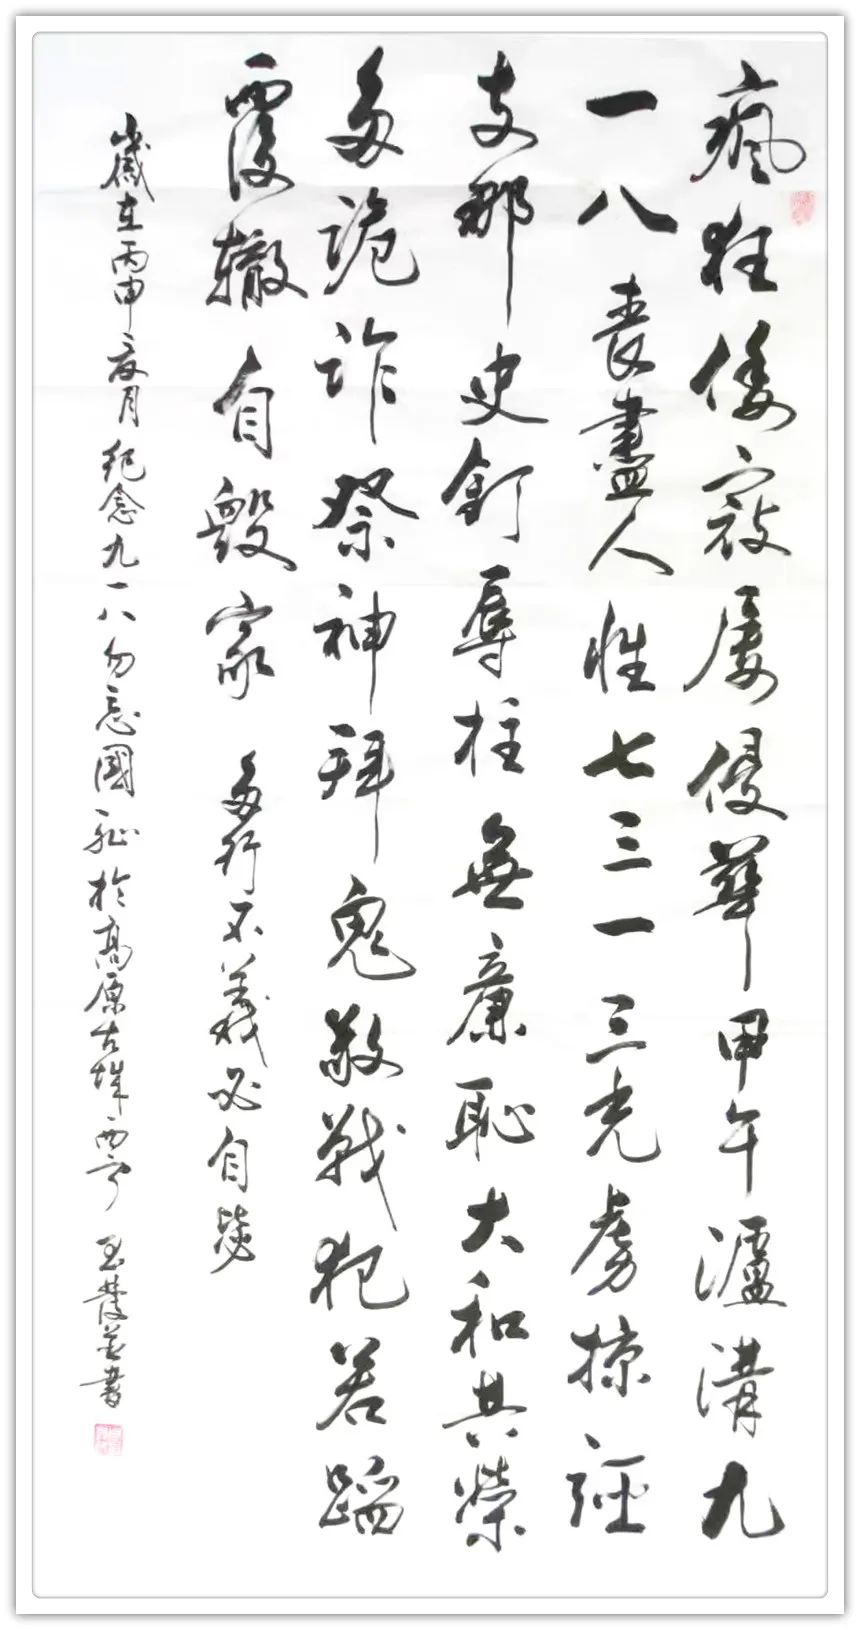 瘋狂倭寇屡侵華甲午瀘溝九
一八喪盡人性七三一三光虜掠誣
支那史釘辱柱無廉恥大和共榮
多詭詐祭神拜鬼敬戰犯若蹈
覆轍自毀家 多行不義必自斃
歲在丙申月紀念九一八勿忘國耻於高原古城西寧 玉發並書